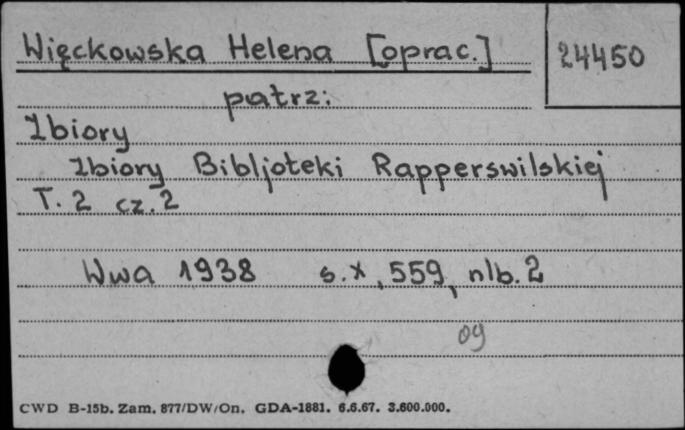 Więckowska Helena [oprac.]
24450
patrz:
Zbiory
Zbiory Bibljoteki Rapperswilskiej
T. 2 cz. 2
Wwa 1938 s. x, 559, nlb. 2
09
CWD B-15b. Zam. 877/DW/On. GDA-1881. 6.6.67. 3.600.000.